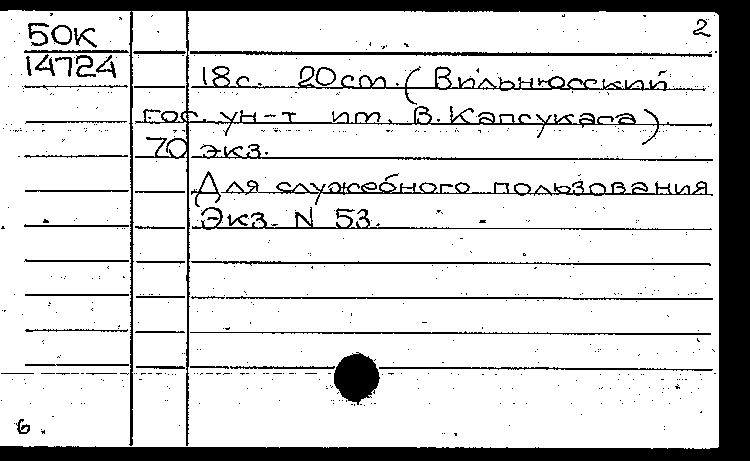 2
50К
14724
18с. 20см. (Вильнюсский
гос. ун-т им. В. Капсукаса).
70 экз.
Для служебного пользования
Экз. N 53.
6.